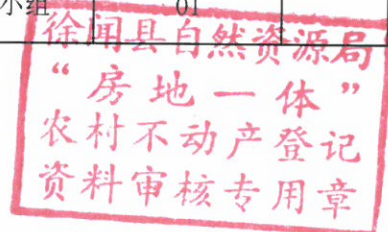 小组 01
徐闻县自然资源局
“房地一体”
农村不动产登记
资料审核专用章